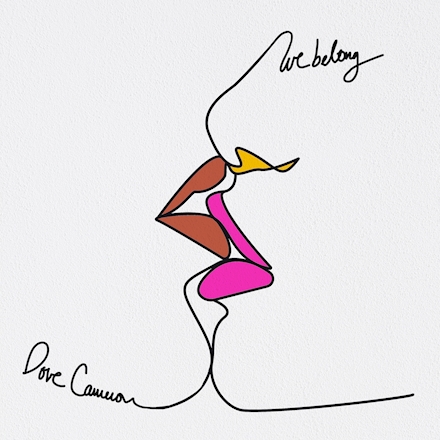 We belong
Dove Cameron